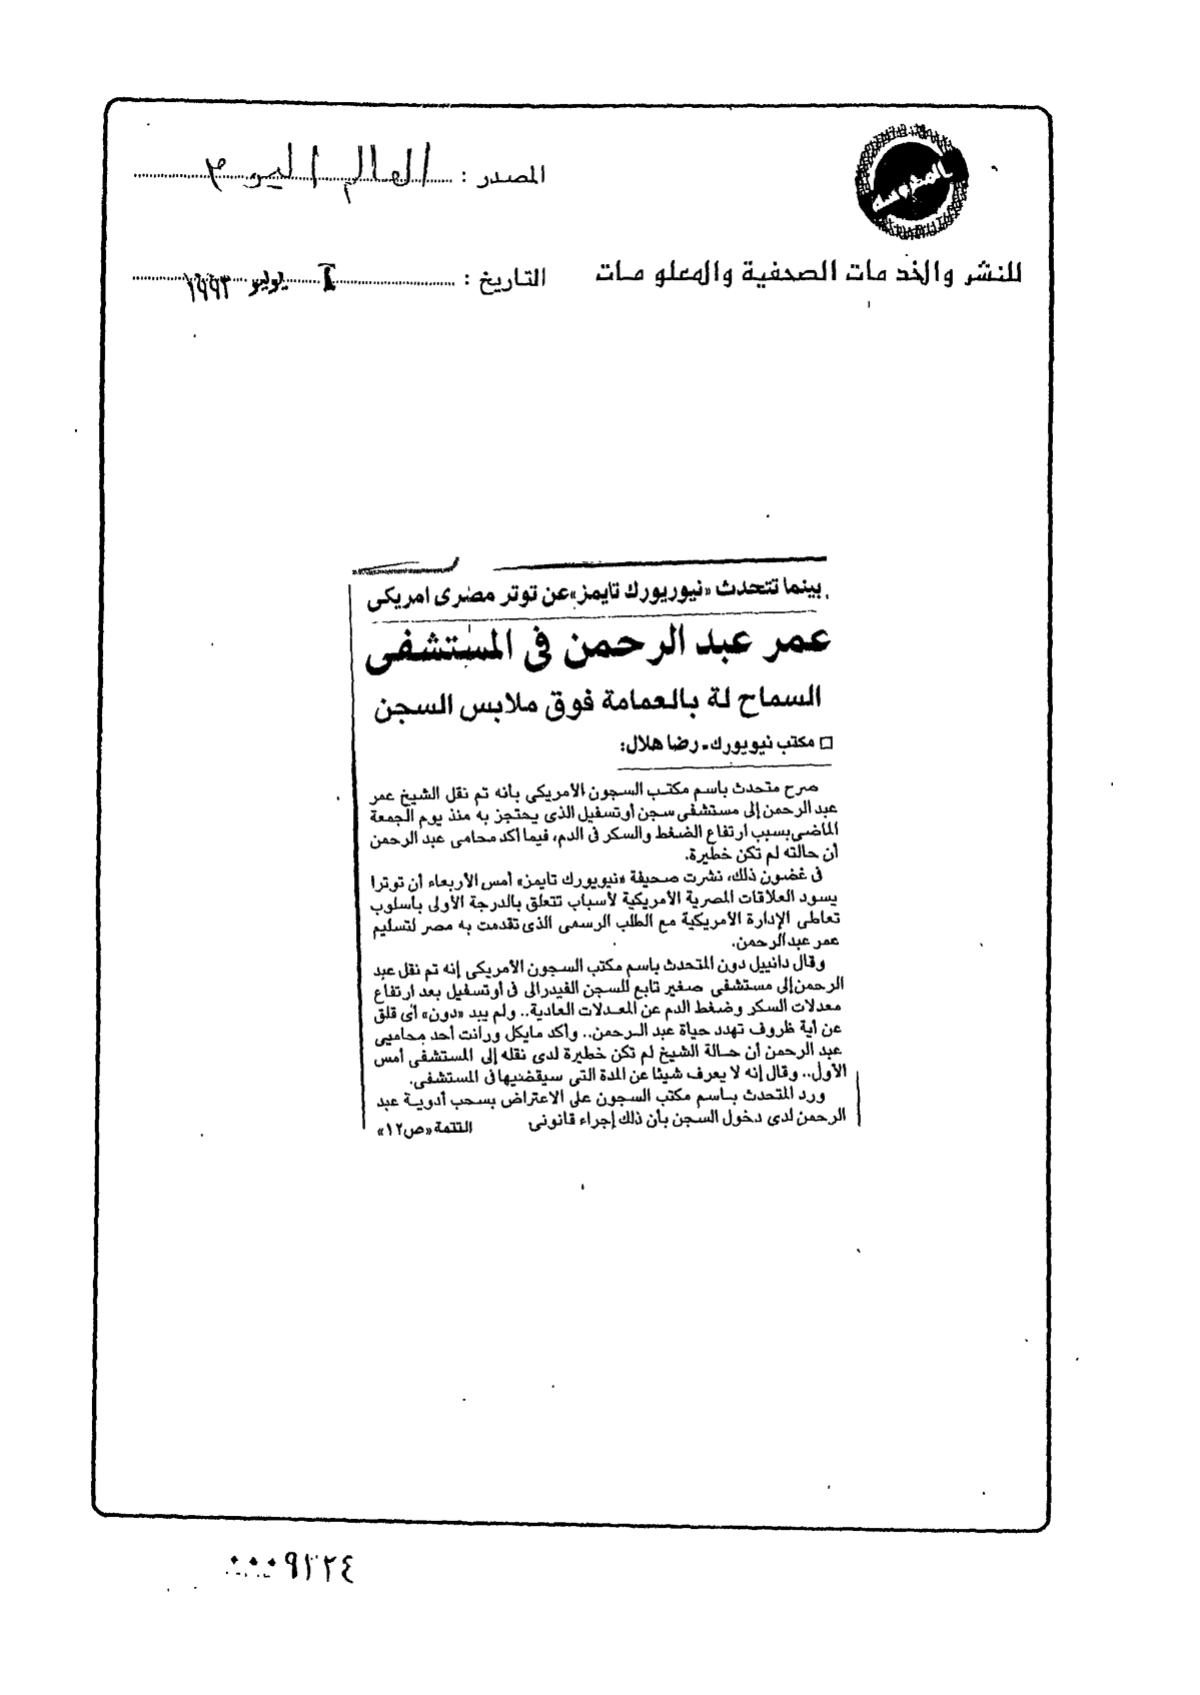 المصدر : العالم اليوم
للنشر والخدمات الصحفية والمعلومات
التاريخ : يوليو ١٩٩٣
بينما تتحدث «نيوريورك تايمز» عن توتر مصرى امريكى
عمر عبد الرحمن فى المستشفى
السماح لة بالعمامة فوق ملابس السجن
□ مكتب نيويورك ـ رضا هلال:
صرح متحدث باسم مكتب السجون الأمريكى بأنه تم نقل الشيخ عمر
عبد الرحمن إلى مستشفى سجن أوتسفيل الذى يحتجز به منذ يوم الجمعة
الماضى بسبب ارتفاع الضغط والسكر فى الدم، فيما أكد محامى عبد الرحمن
أن حالته لم تكن خطيرة.
فى غضون ذلك، نشرت صحيفة «نيويورك تايمز» أمس الأربعاء أن توترا
يسود العلاقات المصرية الأمريكية لأسباب تتعلق بالدرجة الأولى بأسلوب
تعاطى الإدارة الأمريكية مع الطلب الرسمى الذى تقدمت به مصر لتسليم
عمر عبد الرحمن.
وقال دانييل دون المتحدث باسم مكتب السجون الأمريكى إنه تم نقل عبد
الرحمن إلى مستشفى صغير تابع للسجن الفيدرالى فى أوتسفيل بعد ارتفاع
معدلات السكر وضغط الدم عن المعدلات العادية.. ولم يبد «دون» أى قلق
عن أية ظروف تهدد حياة عبد الرحمن.. وأكد مايكل ورانت أحد محاميى
عبد الرحمن أن حالة الشيخ لم تكن خطيرة لدى نقله إلى المستشفى أمس
الأول.. وقال إنه لا يعرف شيئا عن المدة التى سيقضيها فى المستشفى.
ورد المتحدث باسم مكتب السجون على الاعتراض بسحب أدوية عبد
الرحمن لدى دخول السجن بأن ذلك إجراء قانونى
التتمة «ص١٢»